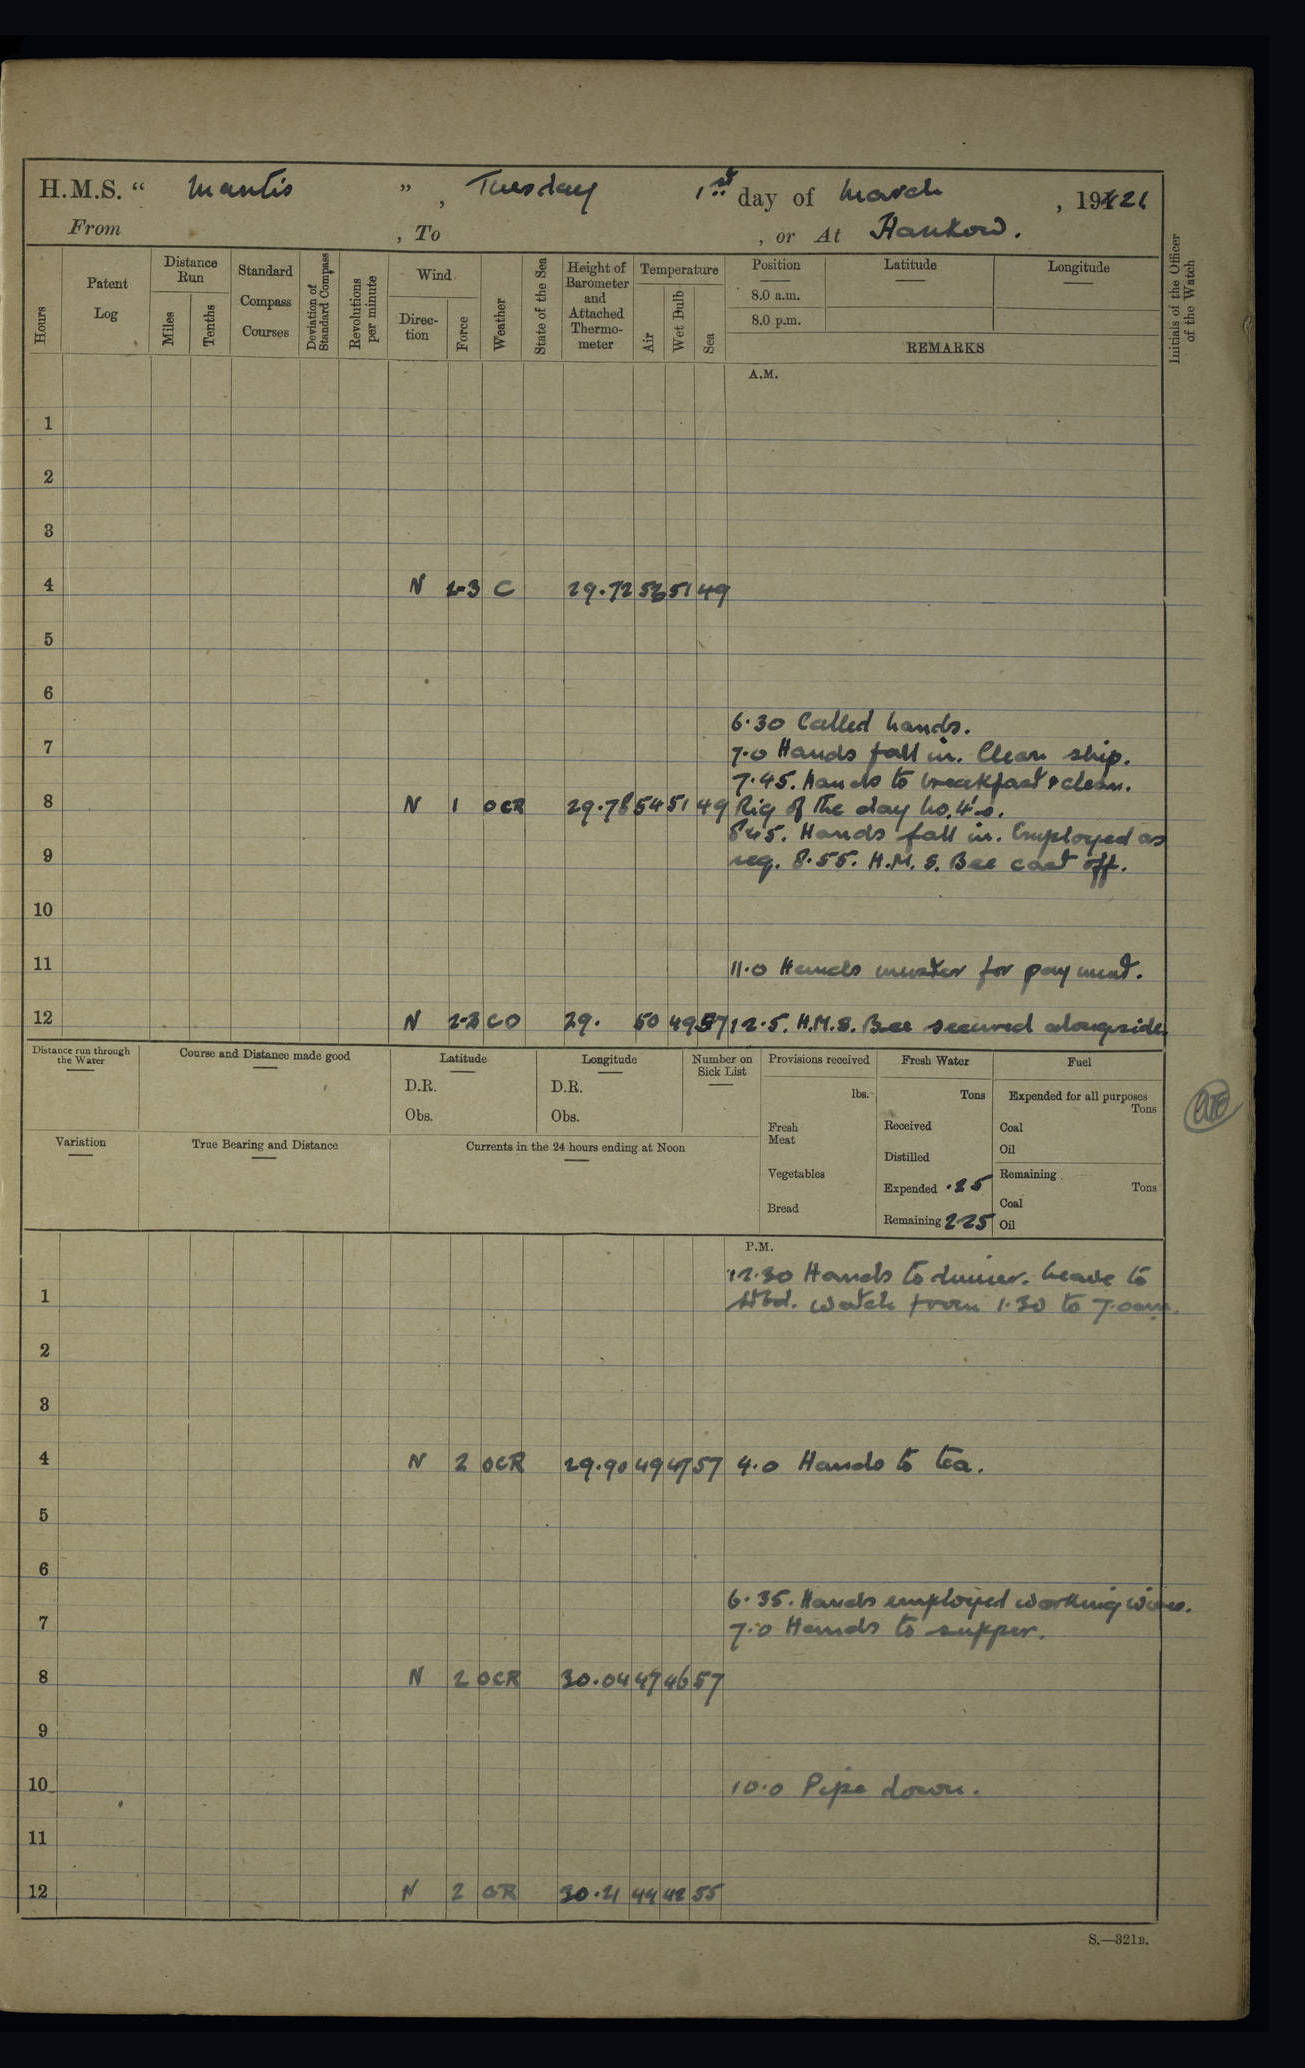 H.M.S. “ Mantis ” , Tuesday 1st day of March , 19
From , To , or At Hankow.
Hours
Patent Log
Distance Run
Miles
Tenths
Standard Compass Courses
Deviation of Standard Compass
Revolutions per minute
Wind
Direc-tion
Force
Weather
State of the Sea
Height of Barometer and Attached Thermo-meter
Temperature
Air
Wet Bulb
Sea
Position
8.0 a.m.
8.0 p.m.
Latitude
Longitude
REMARKS
Initials of the Officer of the Watch
A.M.
1
2
3
4 N 2-3 C 29.72 53 51 49
5
6
6.30 Called hands.
7 7.0 Hands fall in. Clean ship.
7.45. Hands to breakfast & clean.
8 N 1 OCR 29.78 54 51 49 Rig of the day No. 4's.
8.45. Hands fall in. Employed as
9 req. 8.55. H.M.S. Bee cast off.
10
11 11.0 Hands muster for payment.
12 N 2-3 CO 29. 50 49 57 12.5. H.M.S. Bee secured alongside
Distance run through the Water
Course and Distance made good
Latitude
D.R.
Obs.
Longitude
D.R.
Obs.
Number on Sick List
Provisions received
lbs.
Fresh Meat
Vegetables
Bread
Fresh Water
Tons
Received
Distilled
Expended .25
Remaining 225
Fuel
Expended for all purposes
Tons
Coal
Oil
Remaining
Tons
Coal
Oil
Variation
True Bearing and Distance
Currents in the 24 hours ending at Noon
P.M.
12.30 Hands to dinner. Leave to
1 Stbd. watch from 1.30 to 7.0am.
2
3
4 N 2 OCR 29.90 49 47 57 4.0 Hands to tea.
5
6
6.35. Hands employed working wires.
7 7.0 Hands to supper.
8 N 2 OCR 30.04 47 46 57
9
10 10.0 Pipe down.
11
12 N 2 OR 30.21 44 42 55
S.—321B.